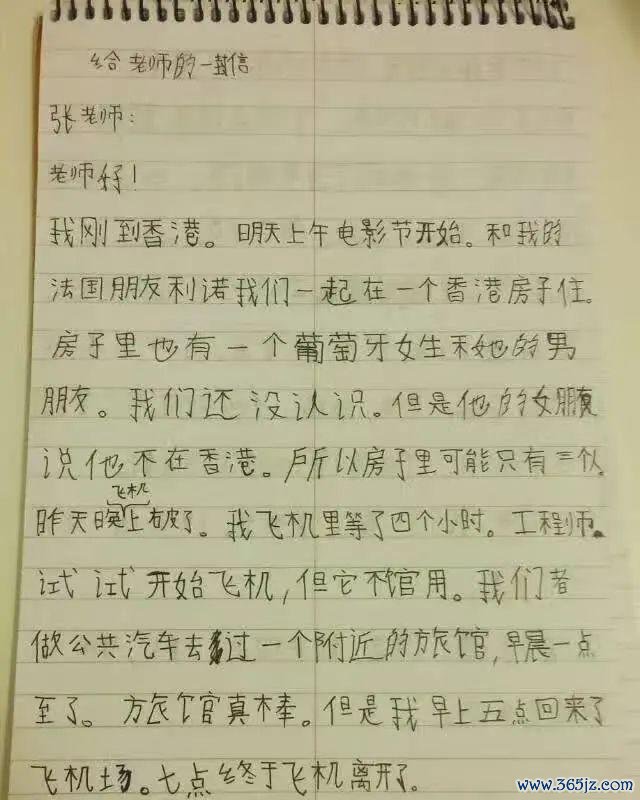 给老师的一封信
张老师：
老师好！
我刚到香港。明天上午电影节开始。和我的
法国朋友利诺我们一起在一个香港房子住。
房子里也有一个葡萄牙女生和她的男
朋友。我们还没认识。但是他的女朋友
说他不在香港。所以房子里可能只有三个人。
飞机
昨天晚上破了。我飞机里等了四个小时。工程师
试试开始飞机，但它不管用。我们者
做公共汽车去过一个附近的旅馆，早晨一点
至了。旅馆真棒。但是我早上五点回来了
飞机场。七点终于飞机离开了。
www.365jz.com